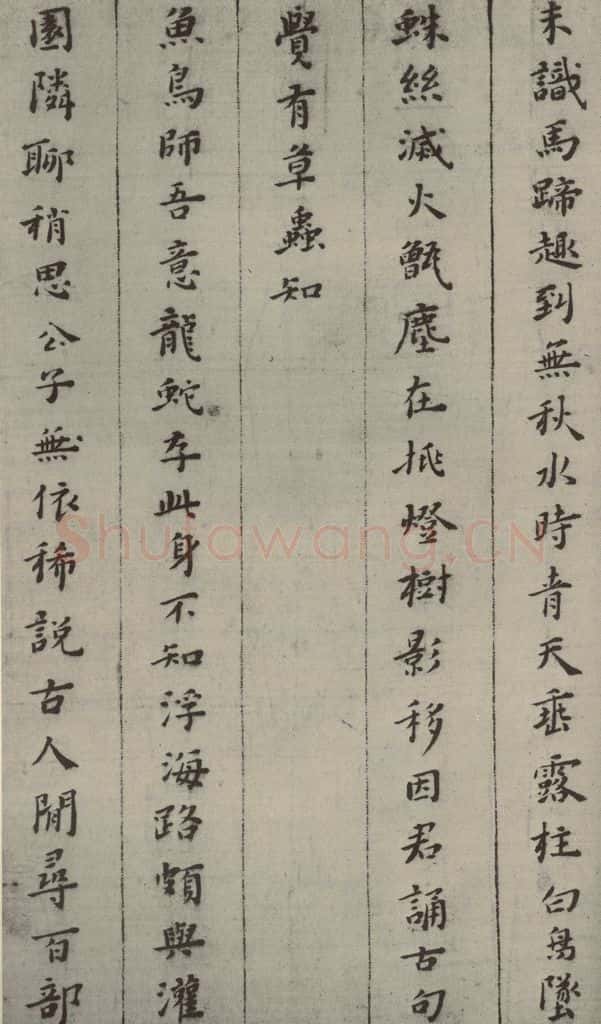 未識馬蹄趣到無秋水時青天垂露柱白舄墜
蛛絲滅火甑塵在挑燈樹影移因君誦古句
覺有草蟲知
魚鳥師吾意龍蛇存此身不知浮海路頗與灌
園隣聊稍思公子無依稀說古人閒尋百部
Shufawang.CN